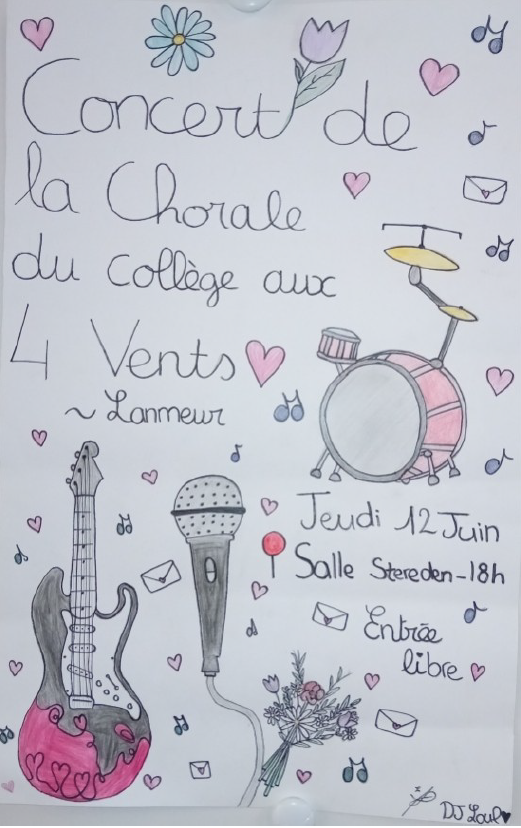 Concert de
la Chorale
du collège aux
4 Vents
~ Lanmeur
Jeudi 12 Juin
Salle Stereden - 18h
Entrée
libre
DJ Loul